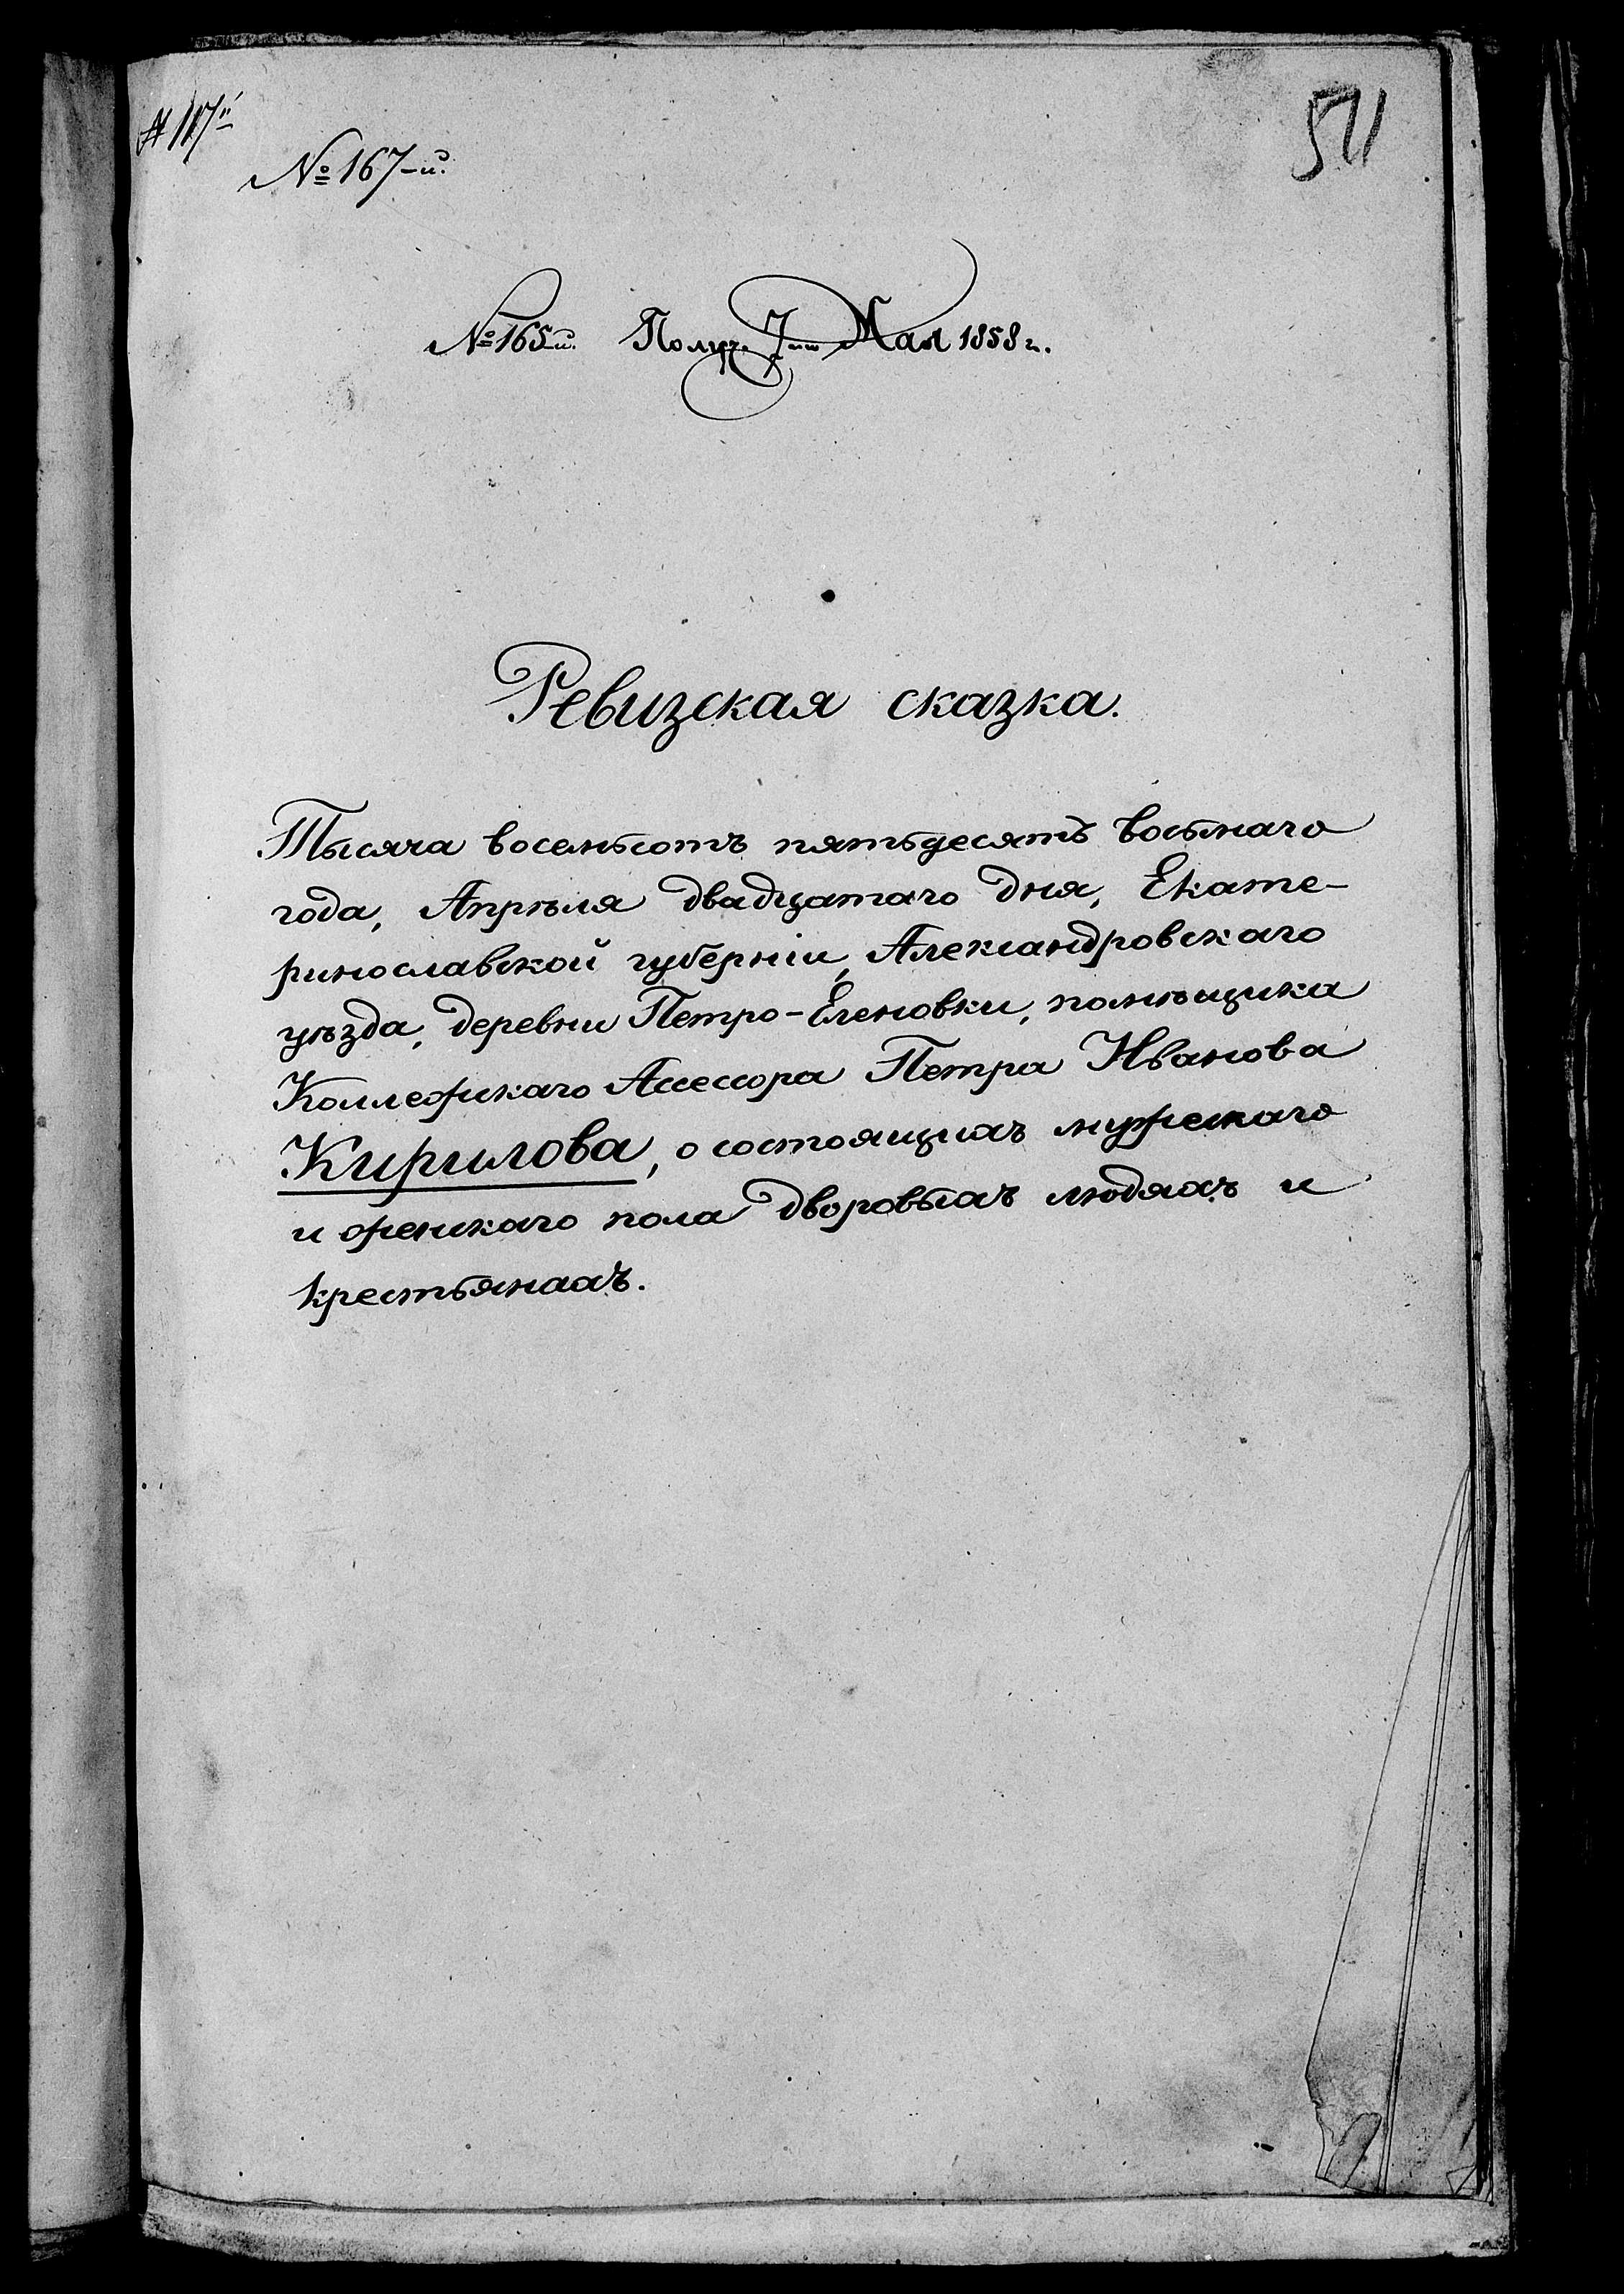 № 117й
511
№ 167-й.
№ 165й. Получ. 7го Мая 1858 г.
Ревизская сказка.
Тысяча восемьсотъ пятьдесятъ восьмаго
года, Апрѣля двадцатаго дня, Екате-
ринославской губерніи, Александровскаго
уѣзда, деревни Петро-Еленовки, помѣщика
Коллежскаго Ассессора Петра Иванова
Кирилова, о состоящихъ мужескаго
и женскаго пола дворовыхъ людяхъ и
крестьянахъ.